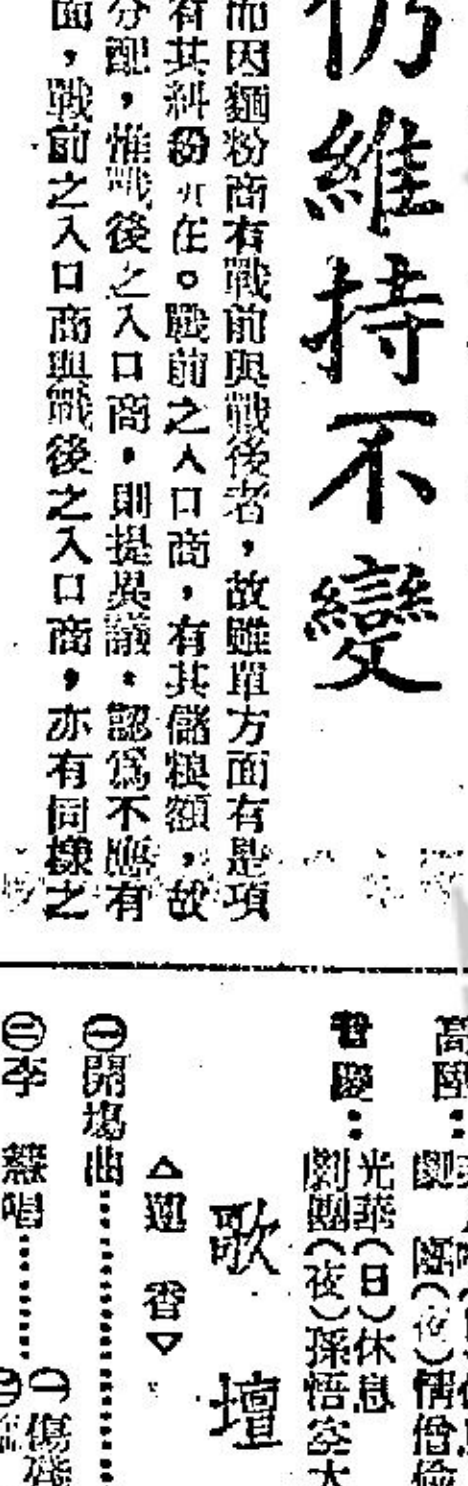 仍維持不變
而因麵粉商有戰前與戰後者，故雖單方面有是項
有其糾紛所在。戰前之入口商，有其儲糧額，故
分配，惟戰後之入口商，則提異議，認為不應有
面，戰前之入口商與戰後之入口商，亦有同樣之
高陞：
劇團（夜）情僧偷
普慶：光華（日）休息
劇團（夜）孫悟空大
歌壇
△蓮香▽
㊀開場曲
㊁李 唱
㊀傷殘